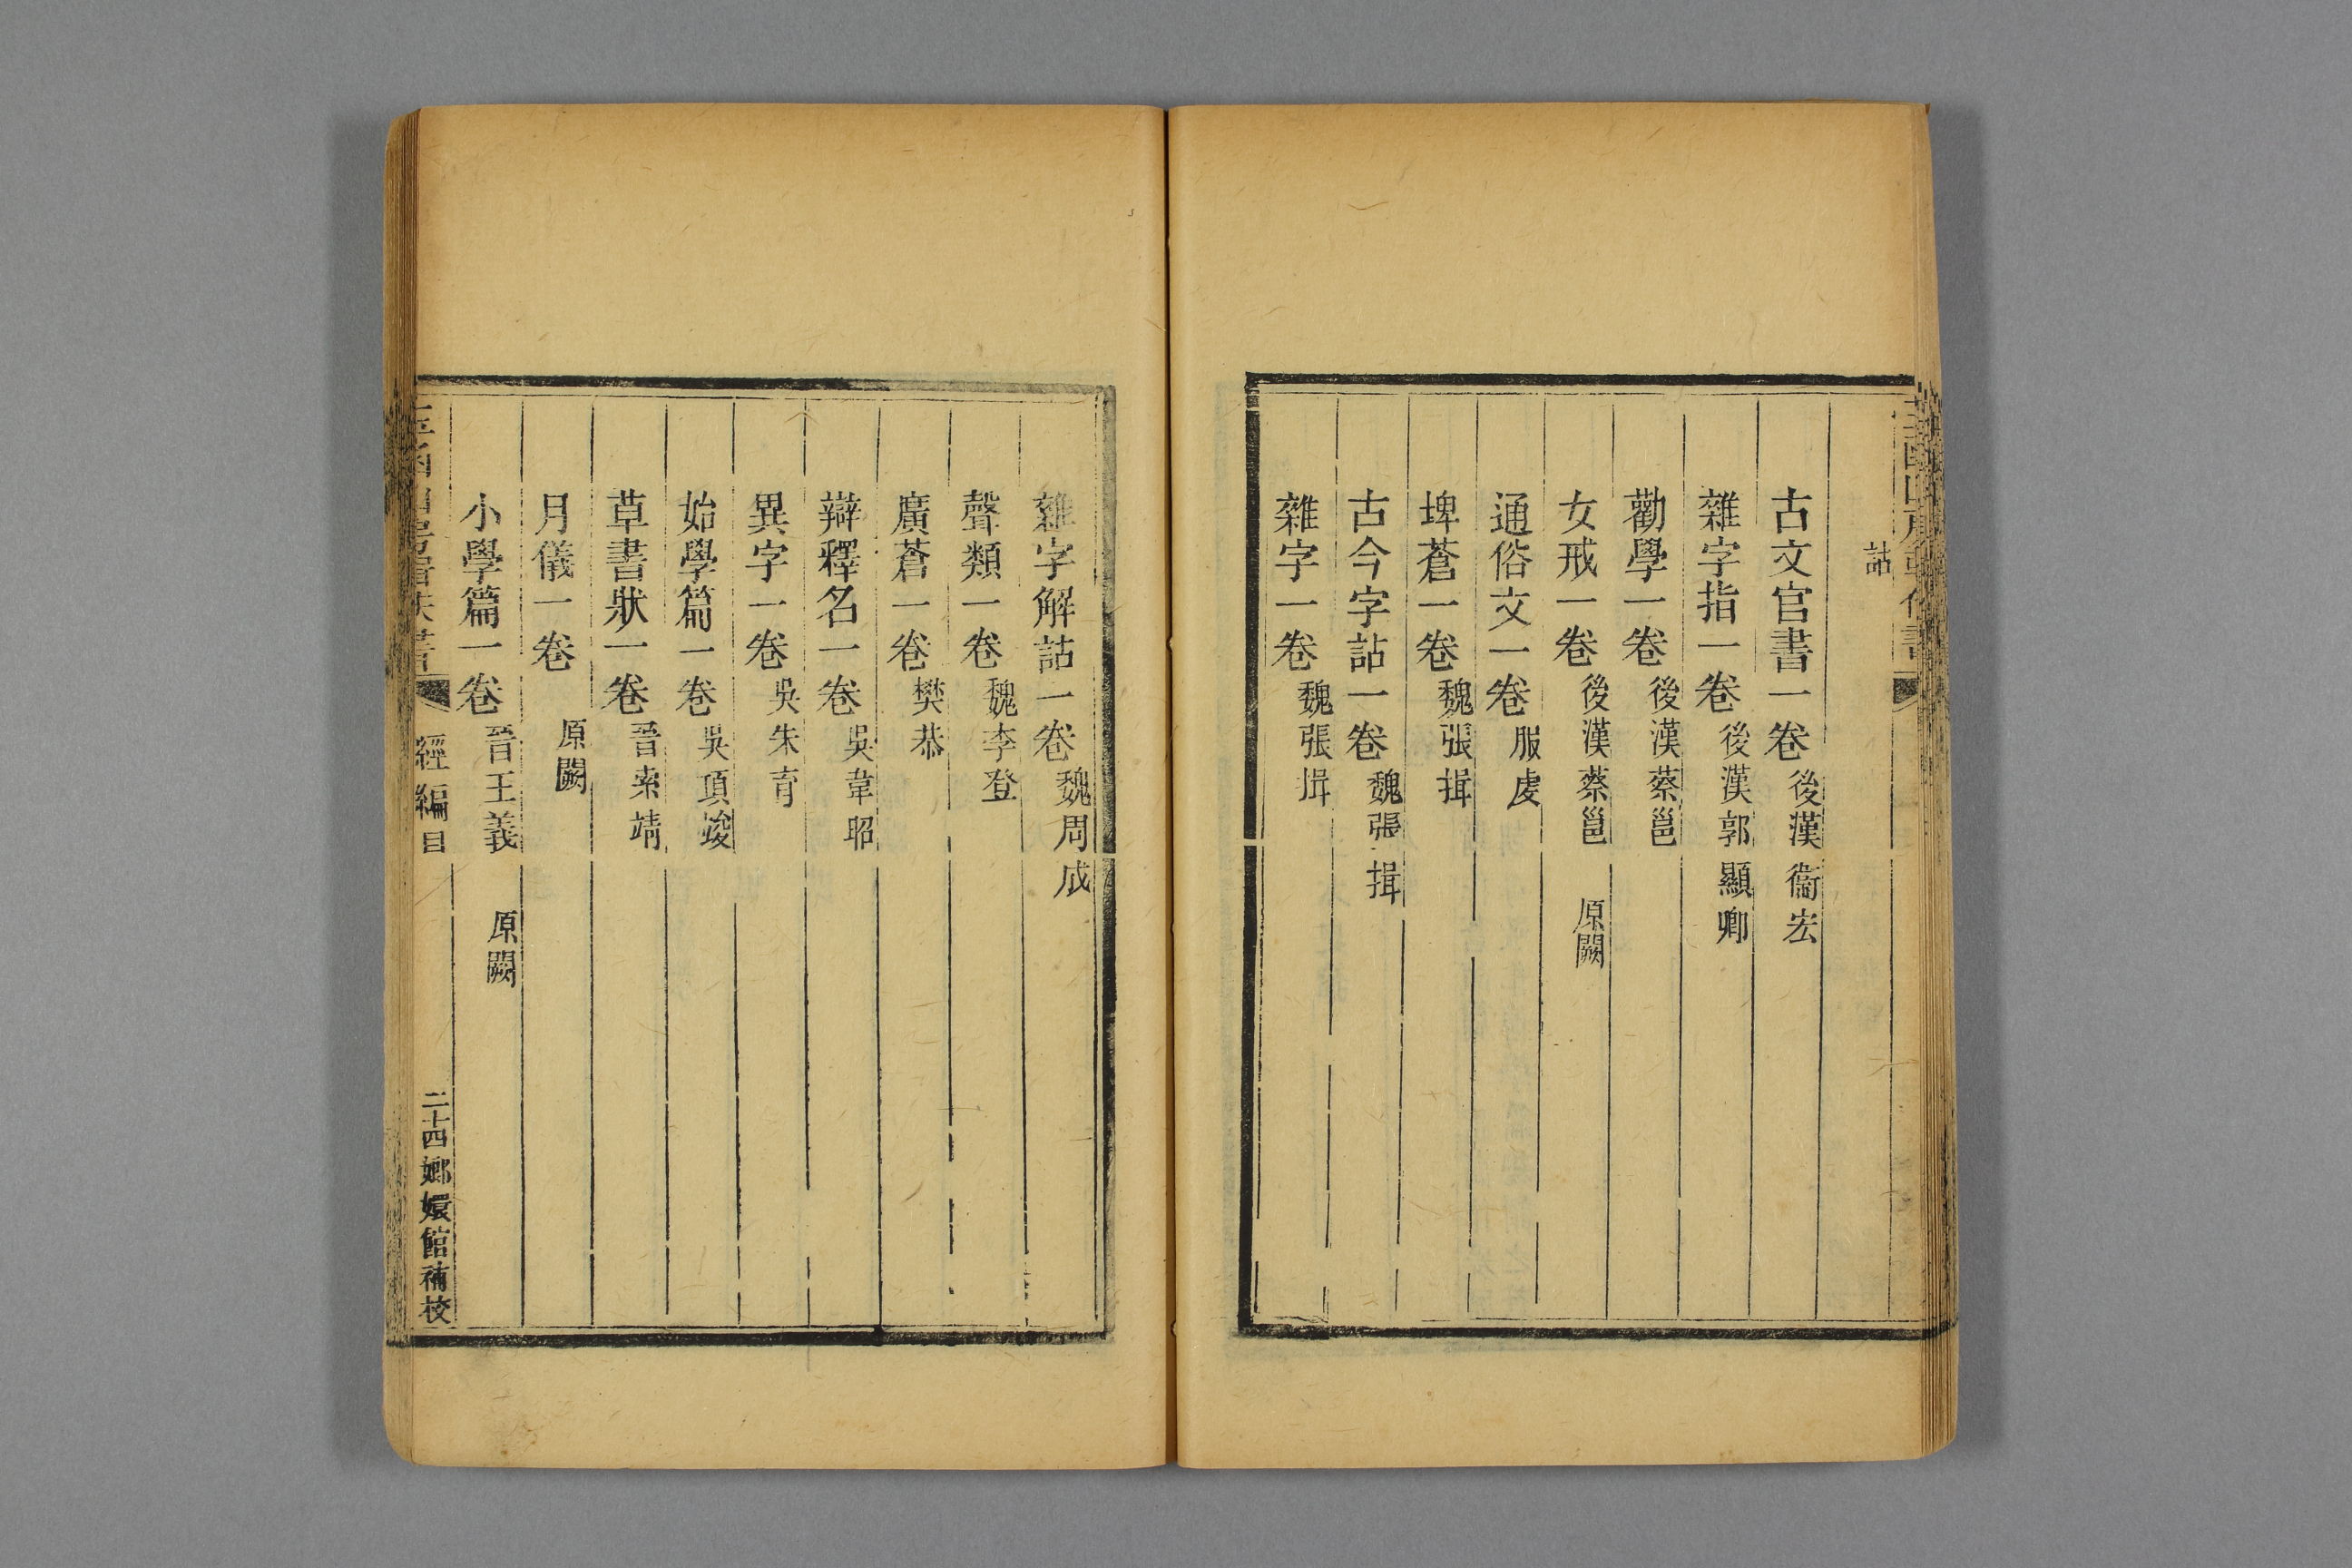 詁
古文官書一卷後漢衞宏
雜字指一卷後漢郭顯卿
勸學一卷後漢蔡邕
女戒一卷後漢蔡邕 原闕
通俗文一卷服虔
埤蒼一卷魏張揖
古今字詁一卷魏張揖
雜字一卷魏張揖
雜字解詁一卷魏周成
聲類一卷魏李登
廣蒼一卷樊恭
辯釋名一卷吳韋昭
異字一卷吳朱育
始學篇一卷吳項竣
草書狀一卷晉索靖
月儀一卷 原闕
小學篇一卷晉王義 原闕
經編目 二十四 嫏嬛館補校